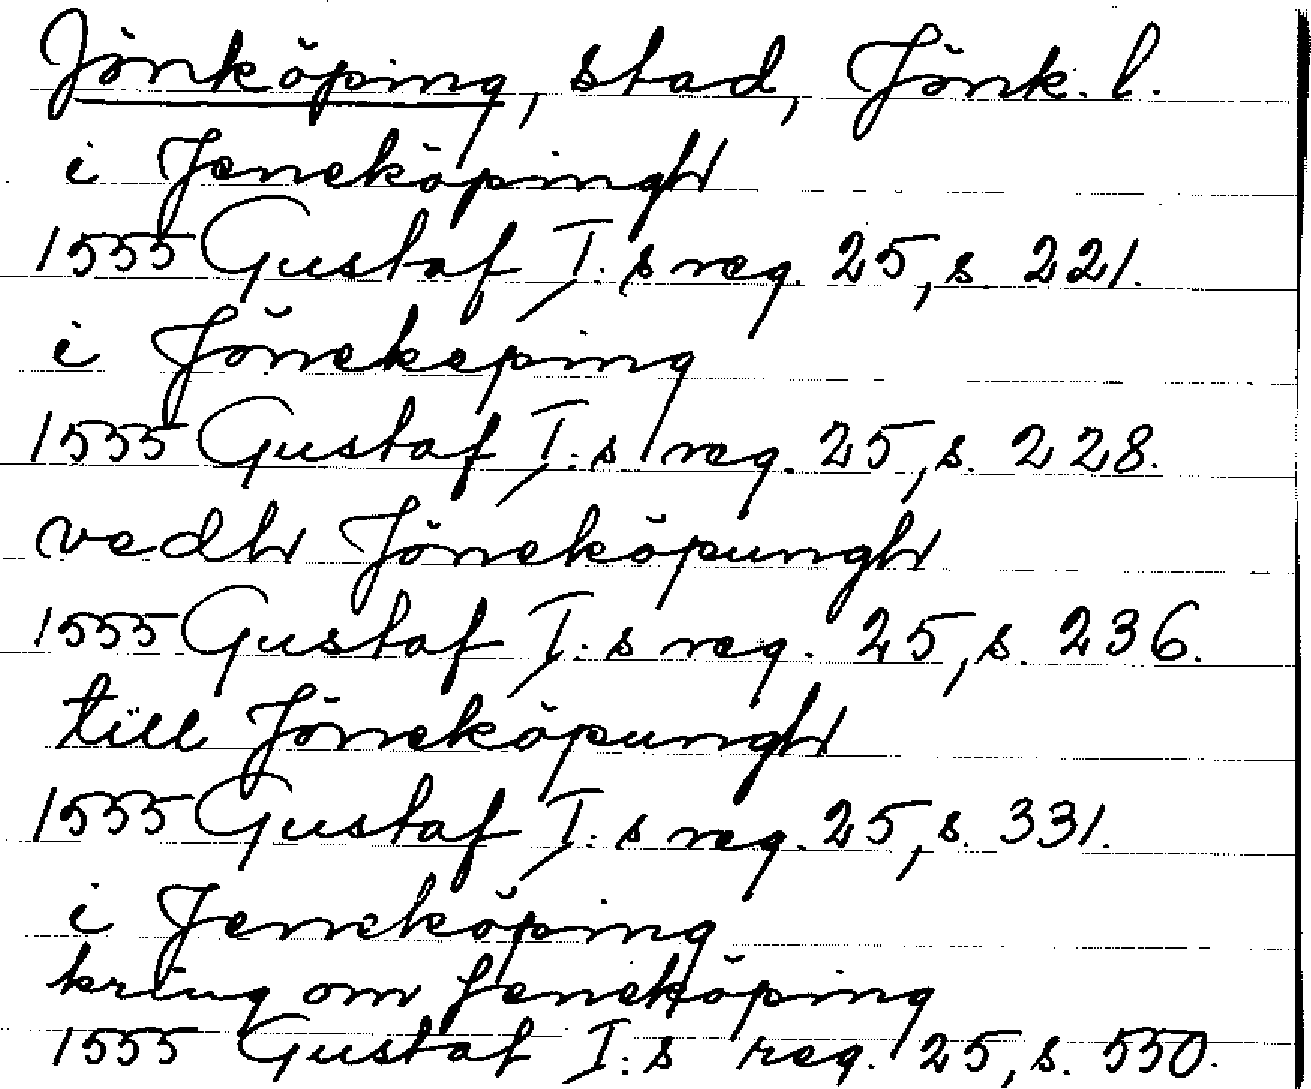 Jönköping, stad, Jönk. l.
i Jeneköpingh
1555 Gustaf I:s reg. 25, s. 221.
i Jönekeping
1555 Gustaf I:s reg. 25, s. 228.
vedh Jöneköpungh
1555 Gustaf I:s reg. 25, s. 236.
till Jöneköpungh
1555 Gustaf I:s reg. 25, s. 331.
i Jeneköping
kring om Jeneköping
1555 Gustaf I:s reg. 25, s. 550.